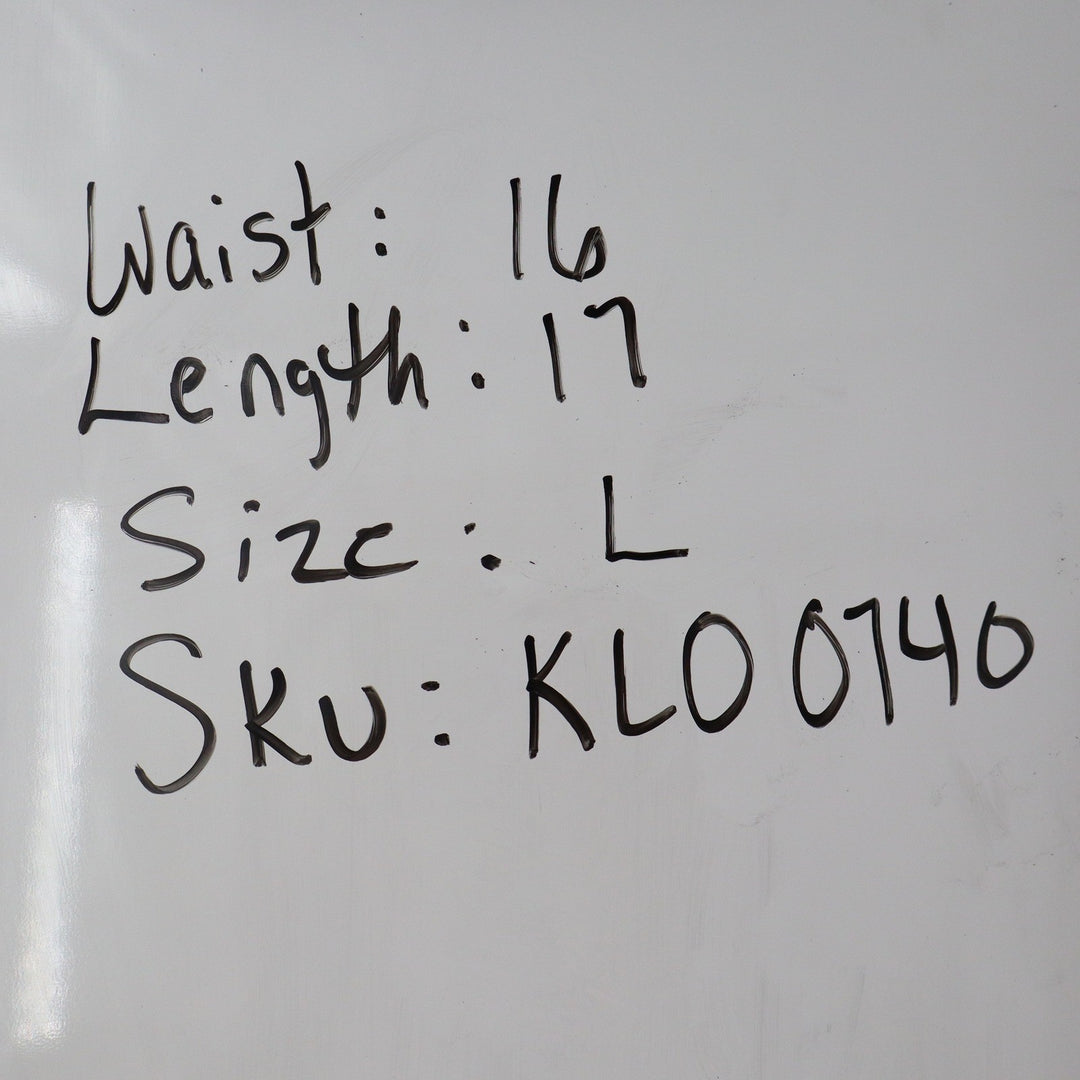 Waist: 16
Length: 17
Size: L
SKU: KLO 0740